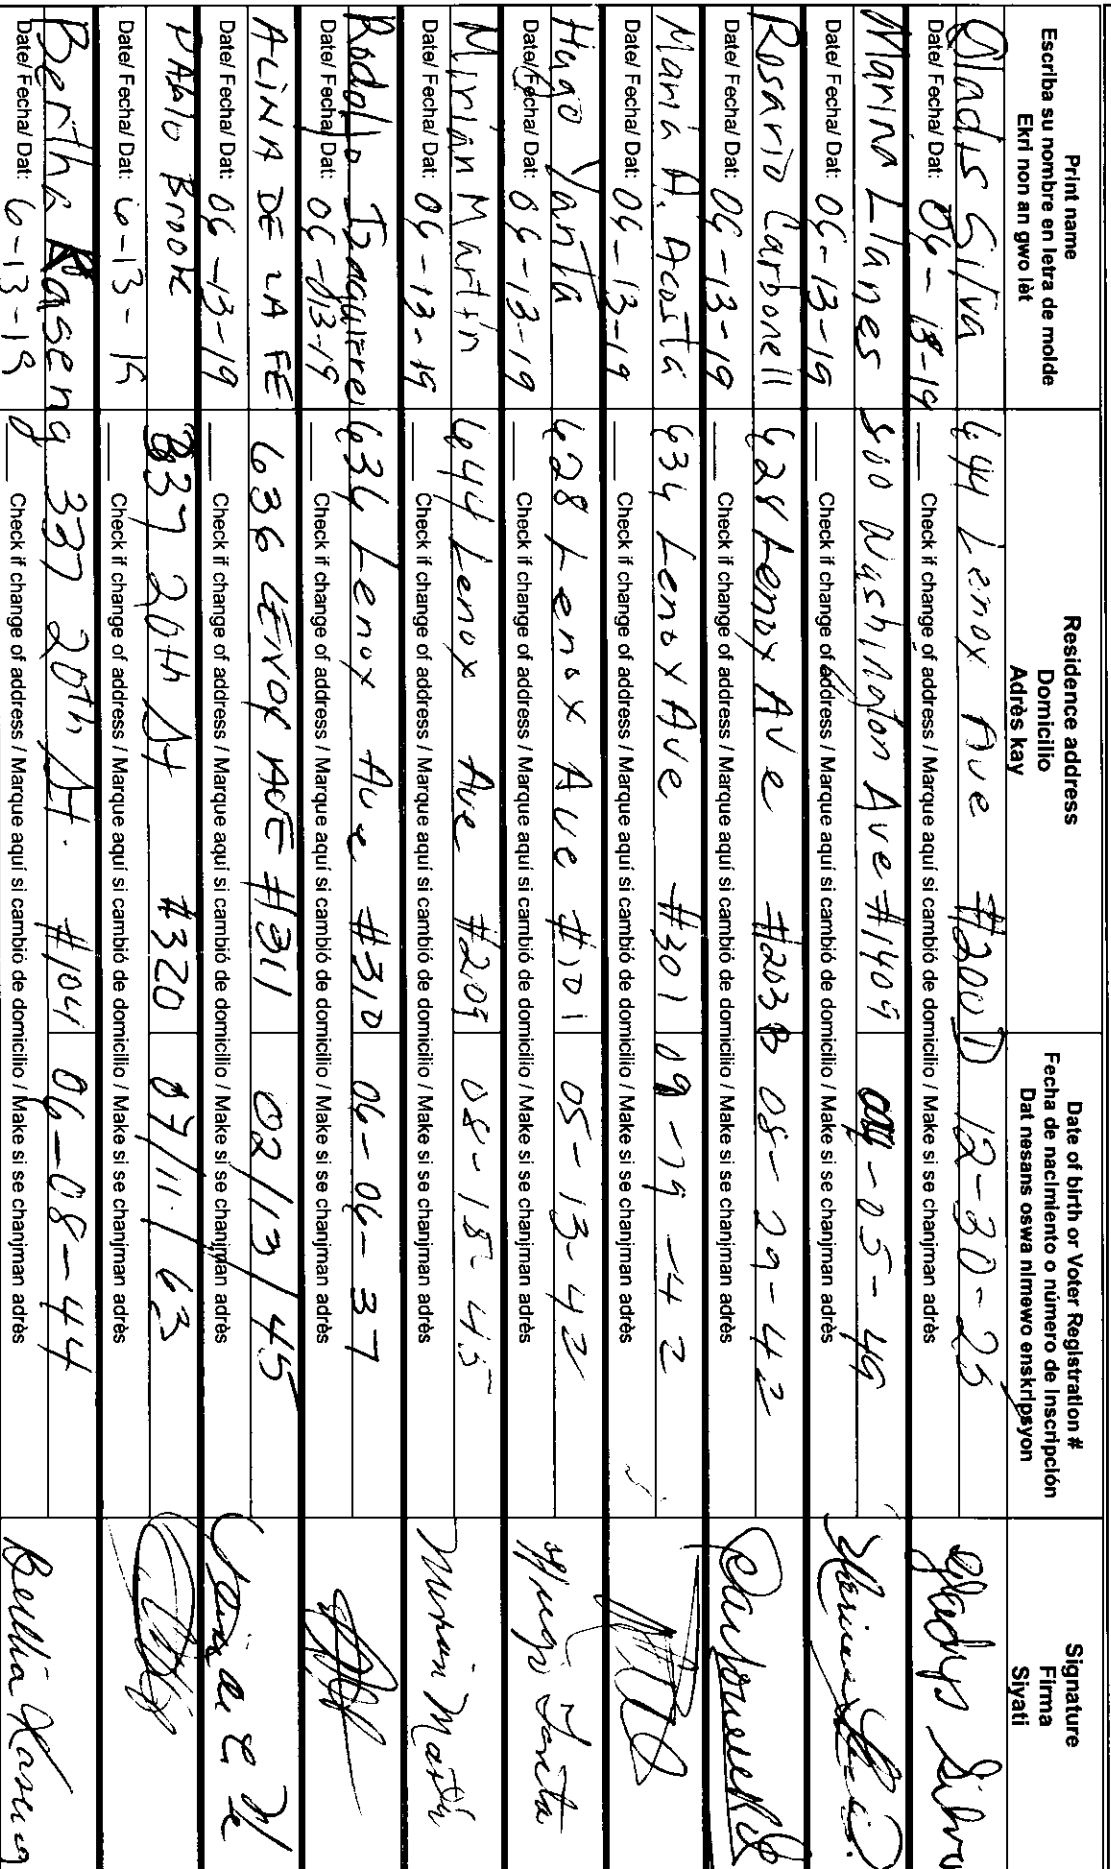 Print name
Escriba su nombre en letra de molde
Ekri non an gwo lèt
Residence address
Domicilio
Adrès kay
Date of birth or Voter Registration #
Fecha de nacimiento o número de inscripción
Dat nesans oswa nimewo enskripsyon
Signature
Firma
Siyati
Gladis Silva 644 Lenox Ave #200D 12-30-25 Gladys Silva
Date/ Fecha/ Dat: 06-13-19 Check if change of address / Marque aquí si cambió de domicilio / Make si se chanjman adrès
Marina Llanes 800 Washington Ave #1409 -05-49
Date/ Fecha/ Dat: 06-13-19 Check if change of address / Marque aquí si cambió de domicilio / Make si se chanjman adrès
Rosario Carbonell 628 Lenox Ave #203B 08-29-42
Date/ Fecha/ Dat: 06-13-19 Check if change of address / Marque aquí si cambió de domicilio / Make si se chanjman adrès
Maria A. Acosta 634 Lenox Ave #301 09-19-42
Date/ Fecha/ Dat: 06-13-19 Check if change of address / Marque aquí si cambió de domicilio / Make si se chanjman adrès
Hugo Yanta 628 Lenox Ave #101 05-13-42 Hugo
Date/ Fecha/ Dat: 06-13-19 Check if change of address / Marque aquí si cambió de domicilio / Make si se chanjman adrès
Mirian Martin 644 Lenox Ave #209 08-15-45 Mirian Martin
Date/ Fecha/ Dat: 06-13-19 Check if change of address / Marque aquí si cambió de domicilio / Make si se chanjman adrès
Rodolfo Izaguirre 634 Lenox Ave #310 06-06-37
Date/ Fecha/ Dat: 06-13-19 Check if change of address / Marque aquí si cambió de domicilio / Make si se chanjman adrès
ALINA DE LA FE 636 LENOX AVE #311 02/13/45
Date/ Fecha/ Dat: 06-13-19 Check if change of address / Marque aquí si cambió de domicilio / Make si se chanjman adrès
PABlo Brook 337 20th St #320 07/11/63
Date/ Fecha/ Dat: 6-13-19 Check if change of address / Marque aquí si cambió de domicilio / Make si se chanjman adrès
Bertha Kaseng 337 20th St. #104 06-08-44 Bertha Kaseng
Date/ Fecha/ Dat: 6-13-19 Check if change of address / Marque aquí si cambió de domicilio / Make si se chanjman adrès